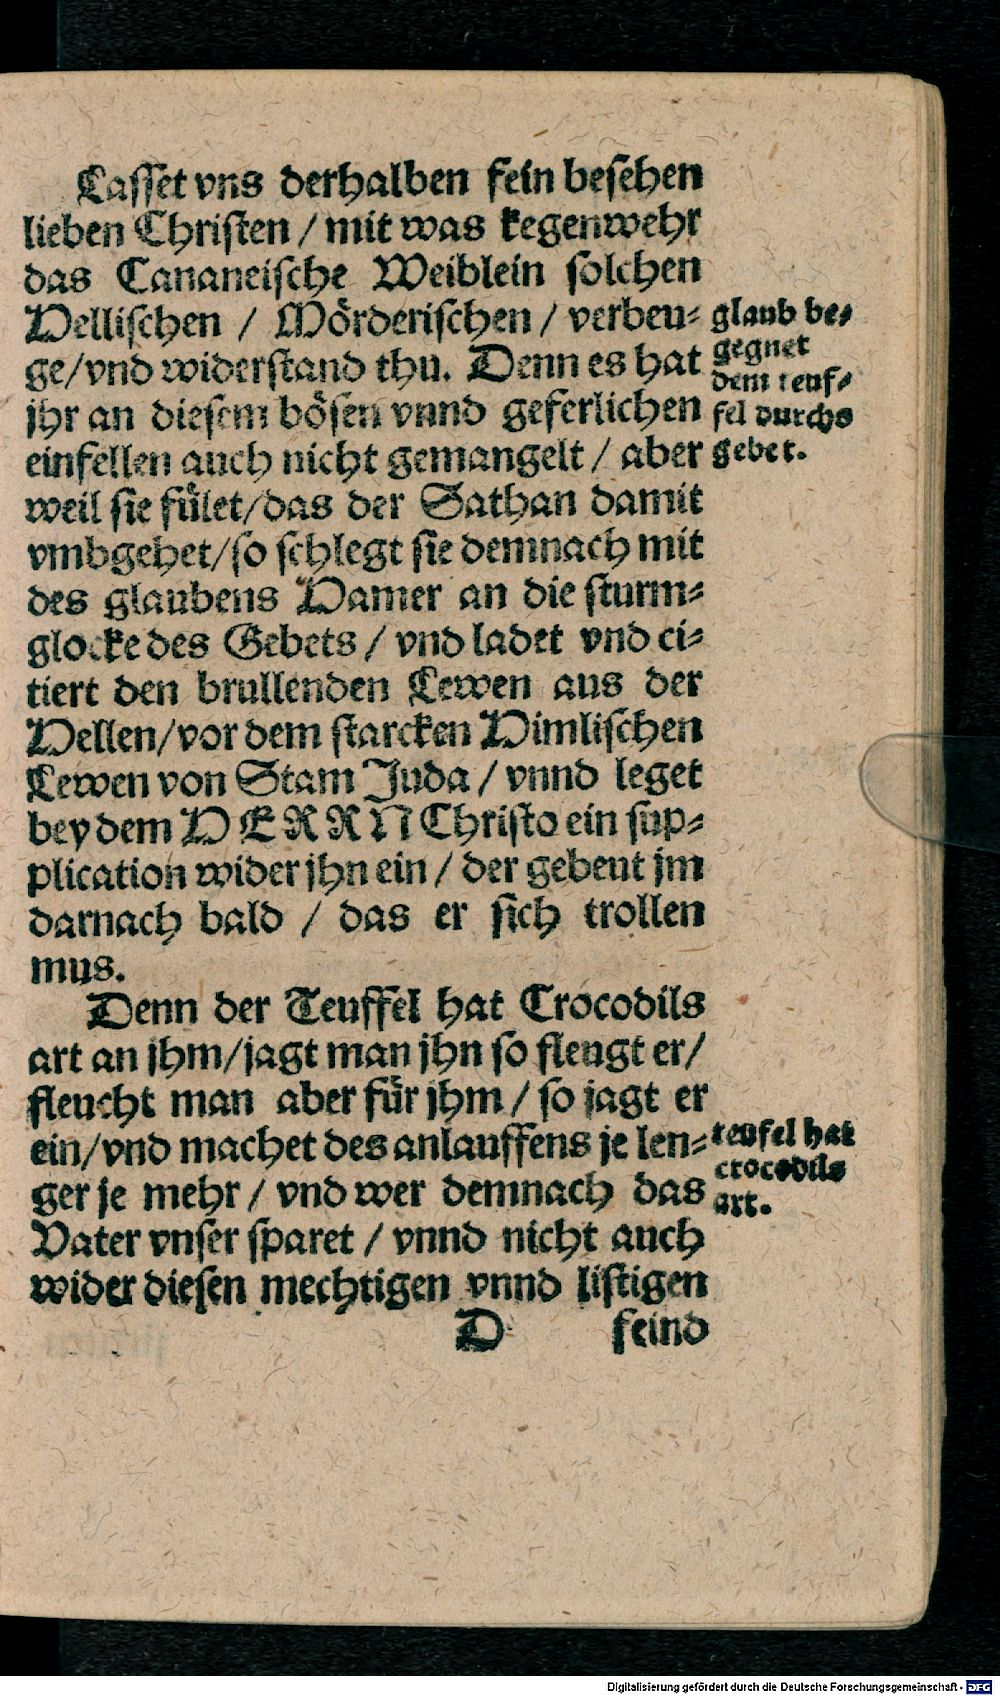 Lasset vns derhalben fein besehen
lieben Christen / mit was kegenwehr
das Cananeische Weiblein solchen
Hellischen / Mörderischen / verbeu⸗
ge/vnd widerstand thu. Denn es hat
jhr an diesem bösen vnnd geferlichen
einfellen auch nicht gemangelt / aber
weil sie fület/das der Sathan damit
vmbgehet/so schlegt sie demnach mit
des glaubens Hamer an die sturm⸗
glocke des Gebets / vnd ladet vnd ci⸗
tiert den brullenden Lewen aus der
Hellen/vor dem starcken Himlischen
Lewen von Stam Juda / vnnd leget
bey dem HERRN Christo ein sup⸗
plication wider jhn ein / der gebeut jm
darnach bald / das er sich trollen
mus.
Denn der Teuffel hat Crocodils
art an jhm/jagt man jhn so fleugt er/
fleucht man aber für jhm / so jagt er
ein/vnd machet des anlauffens je len⸗
ger je mehr / vnd wer demnach das
Vater vnser sparet / vnnd nicht auch
wider diesen mechtigen vnnd listigen
D feind
glaub be⸗
gegnet
dem teuf⸗
fel durchs
gebet.
teufel hat
crocodils
art.
Digitalisierung gefördert durch die Deutsche Forschungsgemeinschaft - DFG